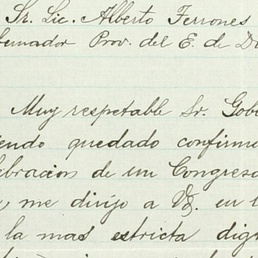 Sr. Lic. Alberto Terrones
bernador Prov. del E. de Du
Muy respetable Sr. Gobe
iendo quedado confirma
ebracion de un Congreso
, me dirijo a Vd. en l
la mas estricta dign